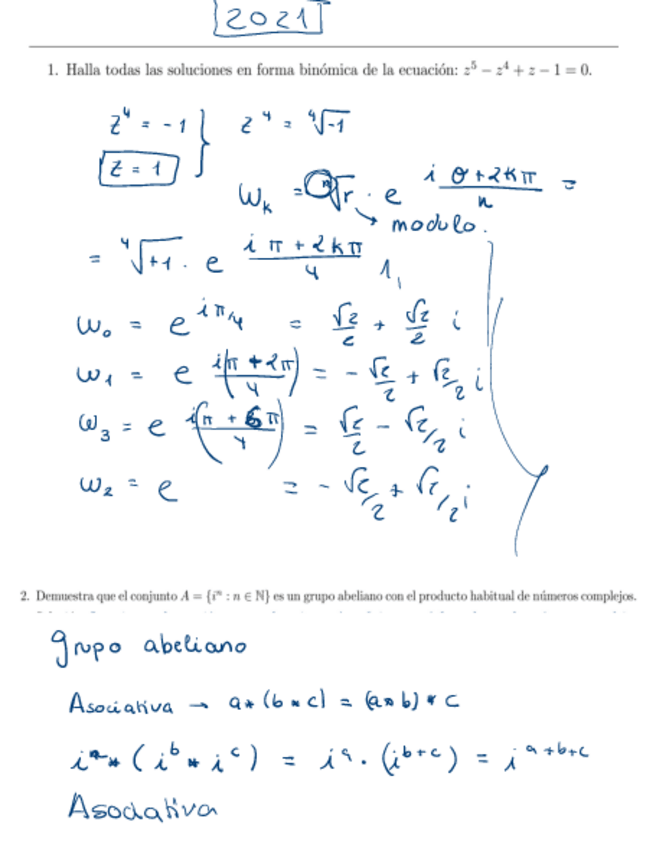 2021
1. Halla todas las soluciones en forma binómica de la ecuación: z⁵ − z⁴ + z − 1 = 0.
z⁴ = -1 } z⁴ = ⁴√-1
z = 1
Wₖ = ⁿ√r · e^(i (θ+2kπ)/n) =
modulo.
= ⁴√+1 · e^(i (π+2kπ)/4)
W₀ = e^(iπ/4) = √2/2 + √2/2 i
W₁ = e^(i(π+2π)/4) = - √2/2 + √2/2 i
W₃ = e^(i(π+6π)/4) = √2/2 - √2/2 i
W₂ = e = - √2/2 + √2/2 i
2. Demuestra que el conjunto A = {iⁿ : n ∈ ℕ} es un grupo abeliano con el producto habitual de números complejos.
grupo abeliano
Asociativa → a * (b * c) = (a * b) * c
iᵃ * (iᵇ * iᶜ) = iᵃ · (iᵇ⁺ᶜ) = iᵃ⁺ᵇ⁺ᶜ
Asociativa